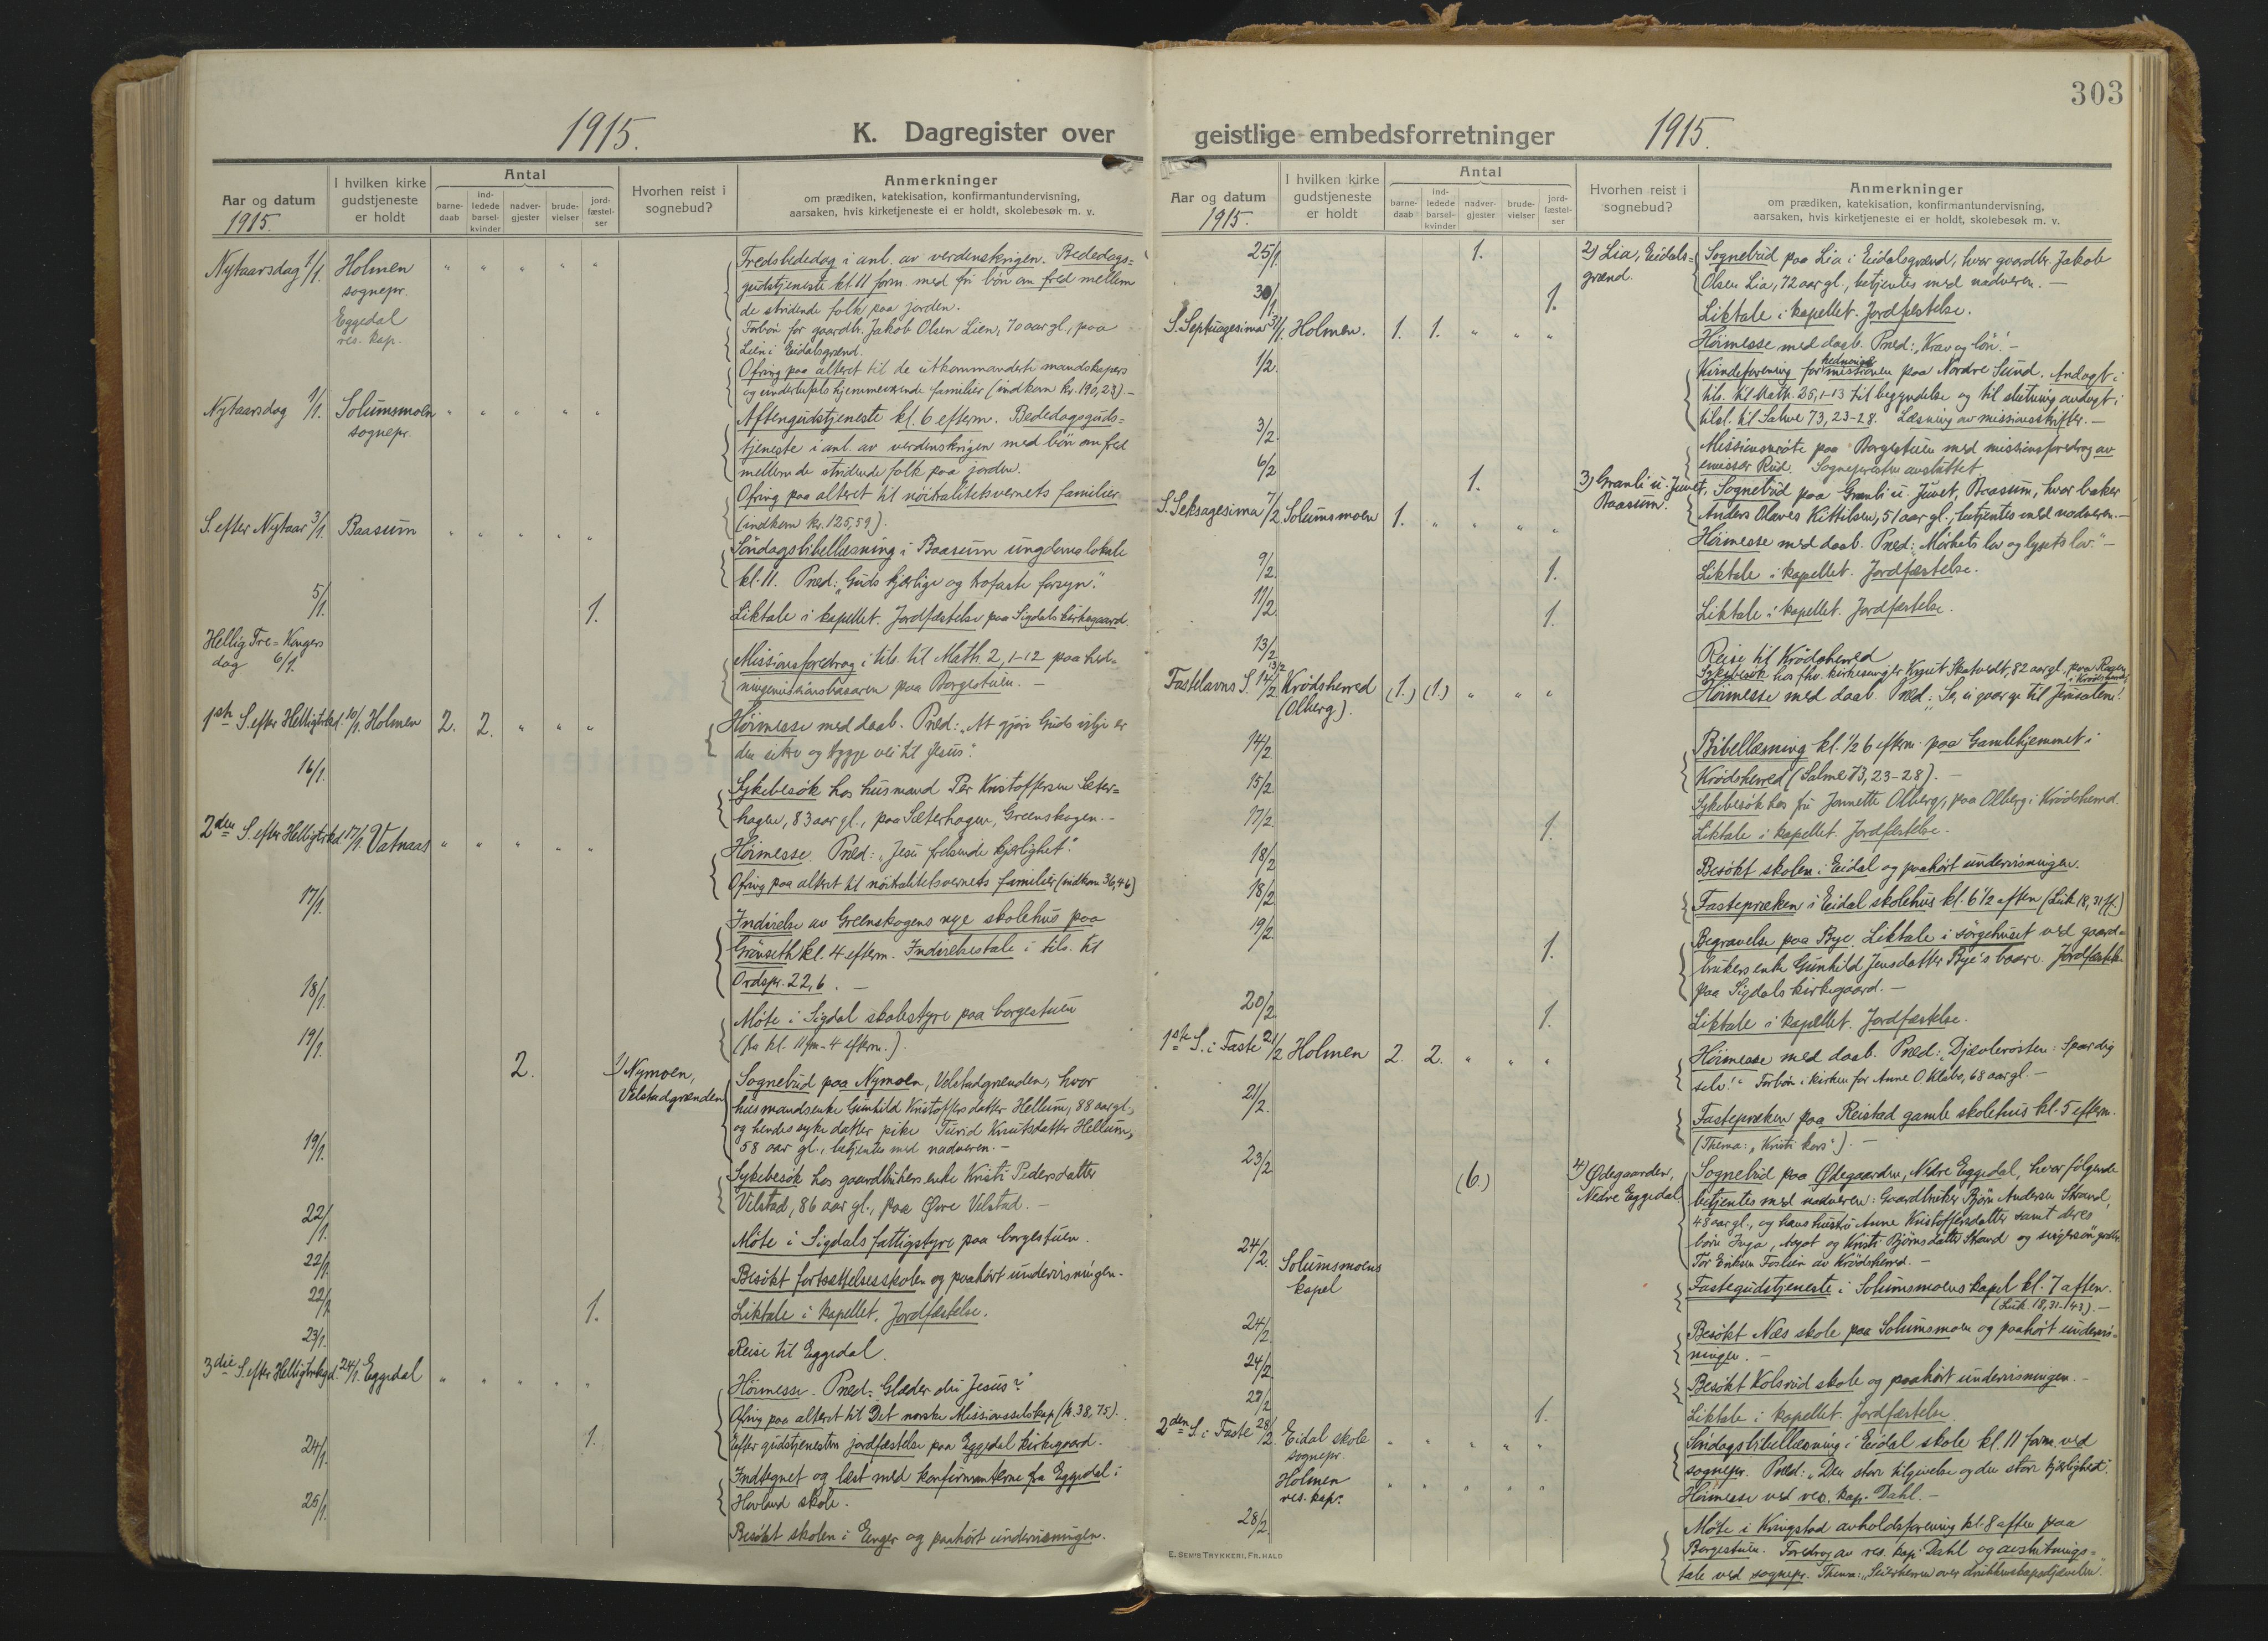 1915.
K. Dagregister over
Aar og datum
1915.
I hvilken kirke
gudstjeneste
er holdt
Antal
barne-
daab
ind-
ledede
barsel-
kvinder
nadver-
gjester
brude-
vielser
jord-
fæstel-
ser
Hvorhen reist i
sognebud?
Anmerkninger
om prædiken, katekisation, konfirmantundervisning,
aarsaken, hvis kirketjeneste ei er holdt, skolebesøk m. v.
Nytaarsdag 1/1. Holmen " " " " " Fredsbededag i anl. av verdenskrigen. Bededags=
sognepr. gudstjeneste kl. 11 form. med fri bön om fred mellem
Eggedal de stridende folk paa jorden.
res. kap. Forbön for gaardbr. Jakob Olsen Lien, 70 aar gl., paa
Lien i Eidalsgrænd.
Ofring paa alteret til de utkommanderte mandskapers
og underbefals hjemmeværende familier (indkom kr. 190,23). -
Nytaarsdag 1/1. Solumsmoen " " " " " Aftengudstjeneste kl. 6 efterm. Bededagsguds=
sognepr. tjeneste i anl. av verdenskrigen med bön om fred
mellem de stridende folk paa jorden.
Ofring paa alteret til nöitralitetsvernets familier
(indkom kr. 125,59).
S. efter Nytaar 3/1. Baasum " " " " " Söndagsbibellæsning i Baasum ungdomslokale
kl. 11. Præd: "Guds kjærlige og trofaste forsyn."
5/1. 1. Liktale i kapellet. Jordfæstelse paa Sigdals kirkegaard.
Hellig Tre=Kongers
dag 6/1. Missionsforedrag i tils. til Math. 2, 1-12 paa hed=
ningemissionsbasaren paa Borgestuen. -
1ste S. efter Helligtrkd. 10/1. Holmen 2. 2. " " " Höimesse med daab. Præd: "At gjöre Guds vilje er
den sikre og trygge vei til Jesus".
16/1. Sykebesök hos husmand Per Kristoffersen Sæter=
hagen, 83 aar gl., paa Sæterhagen, Greenskogen. -
2den S. efter Helligtrkd. 17/1. Vatnaas " " " " " Höimesse. Præd: "Jesu frelsende kjærlighet".
Ofring paa alteret til nöitralitetsvernets familier (indkom 36,46)
17/1. Indvielse av Greenskogens nye skolehus paa
Grönseth kl. 4 efterm. Indvielsestale i tils. til
Ordspr. 22,6. -
18/1. Möte i Sigdal skolestyre paa borgestuen
(fra kl. 11 fm - 4 efterm.).
19/1. 2. 1) Nymoen, Sognebud paa Nymoen, Velstadgrænden, hvor
Velstadgrænden husmandsenke Gunhild Kristoffersdatter Hellum, 88 aar gl.,
og hendes syke datter pike Turid Knutsdatter Hellum,
58 aar gl., betjentes med nadveren. -
19/1. Sykebesök hos gaardbrukers enke Kristi Pedersdatter
Vilstad, 86 aar gl., paa Øvre Velstad. -
22/1. Möte i Sigdals fattigstyre paa borgestuen.
22/1. Besökt fortsættelsesskolen og paahört undervisningen.
22/1. 1. Liktale i kapellet. Jordfæstelse.
23/1. Reise til Eggedal.
3die S. efter Helligtrkgd. 24/1. Eggedal " " " " " Höimesse. Præd: Glæder du Jesus?"
Ofring paa alteret til Det norske Missionsselskap (k. 38,75).
1. Efter gudstjenesten jordfæstelse paa Eggedal kirkegaard.
24/1. Indtegnet og læst med konfirmanterne fra Eggedal i
Hovland skole.
25/1. Besökt skolen i Enger og paahört undervisningen.
303
geistlige embedsforretninger
1915.
Aar og datum
1915.
I hvilken kirke
gudstjeneste
er holdt
Antal
barne-
daab
ind-
ledede
barsel-
kvinder
nadver-
gjester
brude-
vielser
jord-
fæstel-
ser
Hvorhen reist i
sognebud?
Anmerkninger
om prædiken, katekisation, konfirmantundervisning,
aarsaken, hvis kirketjeneste ei er holdt, skolebesøk m. v.
25/1. 1. 2) Lia, Eidals= Sognebud paa Lia i Eidalsgrænd, hvor gaardbr. Jakob
grænd. Olsen Lia, 72 aar gl., betjentes med nadveren. -
30/1. 1. Liktale i kapellet. Jordfæstelse.
S. Septuagesima 31/1. Holmen. 1. 1. " " " Höimesse med daab. Præd: "Krav og lön". -
1/2. Kvindeforening for hedningemissionen paa Nordre Sund. Andagt i
tils. til Math. 25, 1-13 til begyndelse og til slutning andagt i
tilsl. til Salme 73, 23-28. Læsning av missionsskrifter. -
3/2. Missionsmöte paa Borgestuen med missionsforedrag av
emissær Rud. Sognepresten avsluttet
6/2 1. 3) Granli u. Juvet, Sognebud paa Granli u. Juvet, Baasum, hvor baker
Baasum. Anders Olaves Kittilsen, 51 aar gl., betjentes med nadveren. -
S. Seksagesima 7/2 Solumsmoen 1. " " " " Höimesse med daab. Præd: "Mörkets lov og lysets lov." -
9/2. 1. Liktale i kapellet. Jordfæstelse.
11/2. 1. Liktale i kapellet. Jordfæstelse.
13/2. Reise til Krödsherred
13/2 Sykebesök hos fhv. kirkesanger Knut Skatvedt, 82 aar gl., paa Ragen
i Krödsherred
Fastelavns S. 14/2. Krödsherred (1.) (1.) " " " Höimesse med daab. Præd: "Se, vi gaar op til Jerusalem!
(Olberg).
14/2. Bibellæsning kl. 1/2 6 efterm. paa Gamlehjemmet i
Krödsherred (Salme 73, 23-28). -
15/2. Sykebesök hos fru Jannette Olberg, paa Olberg i Krödsherred.
17/2. 1. Liktale i kapellet. Jordfæstelse.
18/2. Besökt skolen i Eidal og paahört undervisningen.
18/2. Fastepræken i Eidal skolehus kl. 6 1/2 aften (Luk. 18, 31 ff.)
19/2. 1. Begravelse paa Bye. Liktale i sörgehuset ved gaard=
brukers enke Gunhild Jensdatter Bye's baare. Jordfæstelse
paa Sigdals kirkegaard. -
20/2. 1. Liktale i kapellet. Jordfæstelse.
1ste S. i Faste 21/2 Holmen 2. 2. " " " Höimesse med daab. Præd: Djævlerösten: Spar dig
selv!" Forbön i kirken for Anne O. Klabo, 68 aar gl. -
21/2. Fastepræken paa Reistad gamle skolehus kl. 5 efterm.
(Thema: "Kristi kors"). -
23/2. (6.) 4) Ødegaarden, Sognebud paa Ødegaarden, Nedre Eggedal, hvor følgende
Nedre Eggedal betjentes med nadveren: Gaardbruker Björn Andersen Strand,
48 aar gl., og hans hustru Anne Kristoffersdatter samt deres
börn Inga, Aagot og Kristi Björnsdatter Strand og
Tor Eriksen Foslien av Krödsherred. -
24/2. Solumsmoens Fastegudstjeneste i Solumsmoens kapel kl. 7 aften.
kapel (Luk. 18, 31-43). -
24/2. Besökt Næs skole paa Solumsmoen og paahört undervis=
ningen. -
24/2. Besökt Kolsrud skole og paahört undervisningen. -
27/2 1. Liktale i kapellet. Jordfæstelse.
2den S. i Faste 28/2. Eidal skole " " " " " Söndagsbibellæsning i Eidal skole kl. 11 form. ved
sognepr. sognepr. Præd: "Den store tilgivelse og den store kjærlighed".
Holmen " " " " " Höimesse ved res. kap. Dahl. -
res. kap.
28/2. Möte i Kringstad avholdsforening kl. 8 aften paa
Borgestuen. Foredrag av res. kap. Dahl og avslutnings=
tale ved sognepr. Thema: "Seierherren over drukkenskapsdjævelen."
E. SEM'S TRYKKERI, FR.HALD